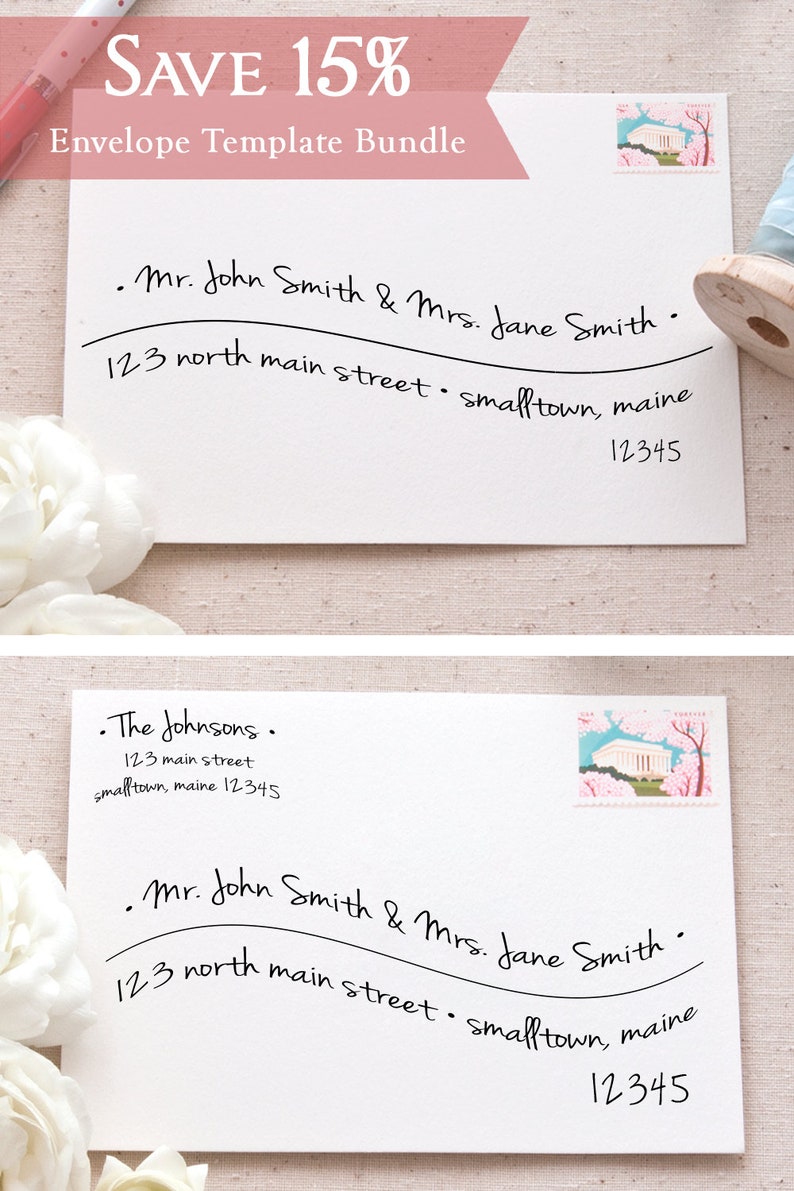 Save 15%
Envelope Template Bundle
USA FOREVER
• Mr. John Smith & Mrs. Jane Smith •
123 north main street • smalltown, maine
12345
• The Johnsons •
123 main street
smalltown, maine 12345
USA FOREVER
• Mr. John Smith & Mrs. Jane Smith •
123 north main street • smalltown, maine
12345